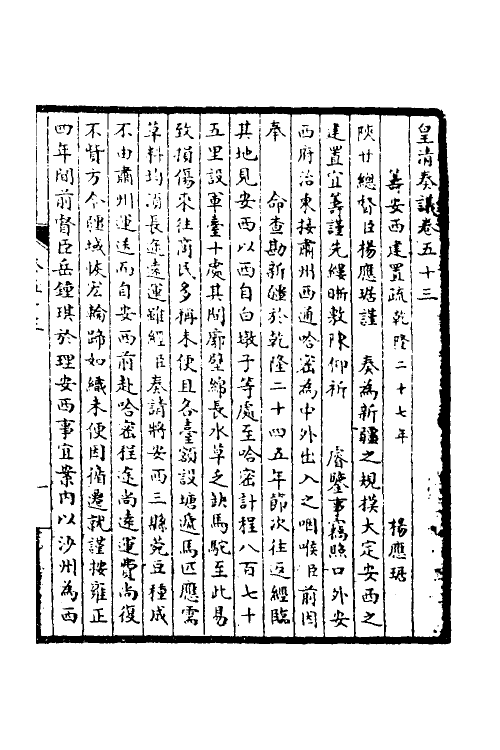 皇清奏議卷五十三
籌安西建置疏乾隆二十七年 楊應琚
陝甘總督臣楊應琚謹 奏為新疆之規模大定安西之
建置宜籌謹先縷晰敷陳仰祈 睿鑒事竊照口外安
西府治東接肅州西通哈密為中外出入之咽喉臣前因
奉 命查勘新疆於乾隆二十四五年節次往返經臨
其地見安西以西自白墩子等處至哈密計程八百七十
五里設軍臺十處其間廓壁綿長水草乏缺馬駝至此易
致損傷來往商民多稱未便且各臺額設塘遞馬匹應需
草料均須長途遠運雖經臣奏請將安西三縣莞豆種成
不由肅州運送而自安西前赴哈密程途尚遠運費尚復
不貲方今疆域恢宏輪蹄如織未便因循遷就謹按雍正
四年間前督臣岳鍾琪於理安西事宜案內以沙州為西